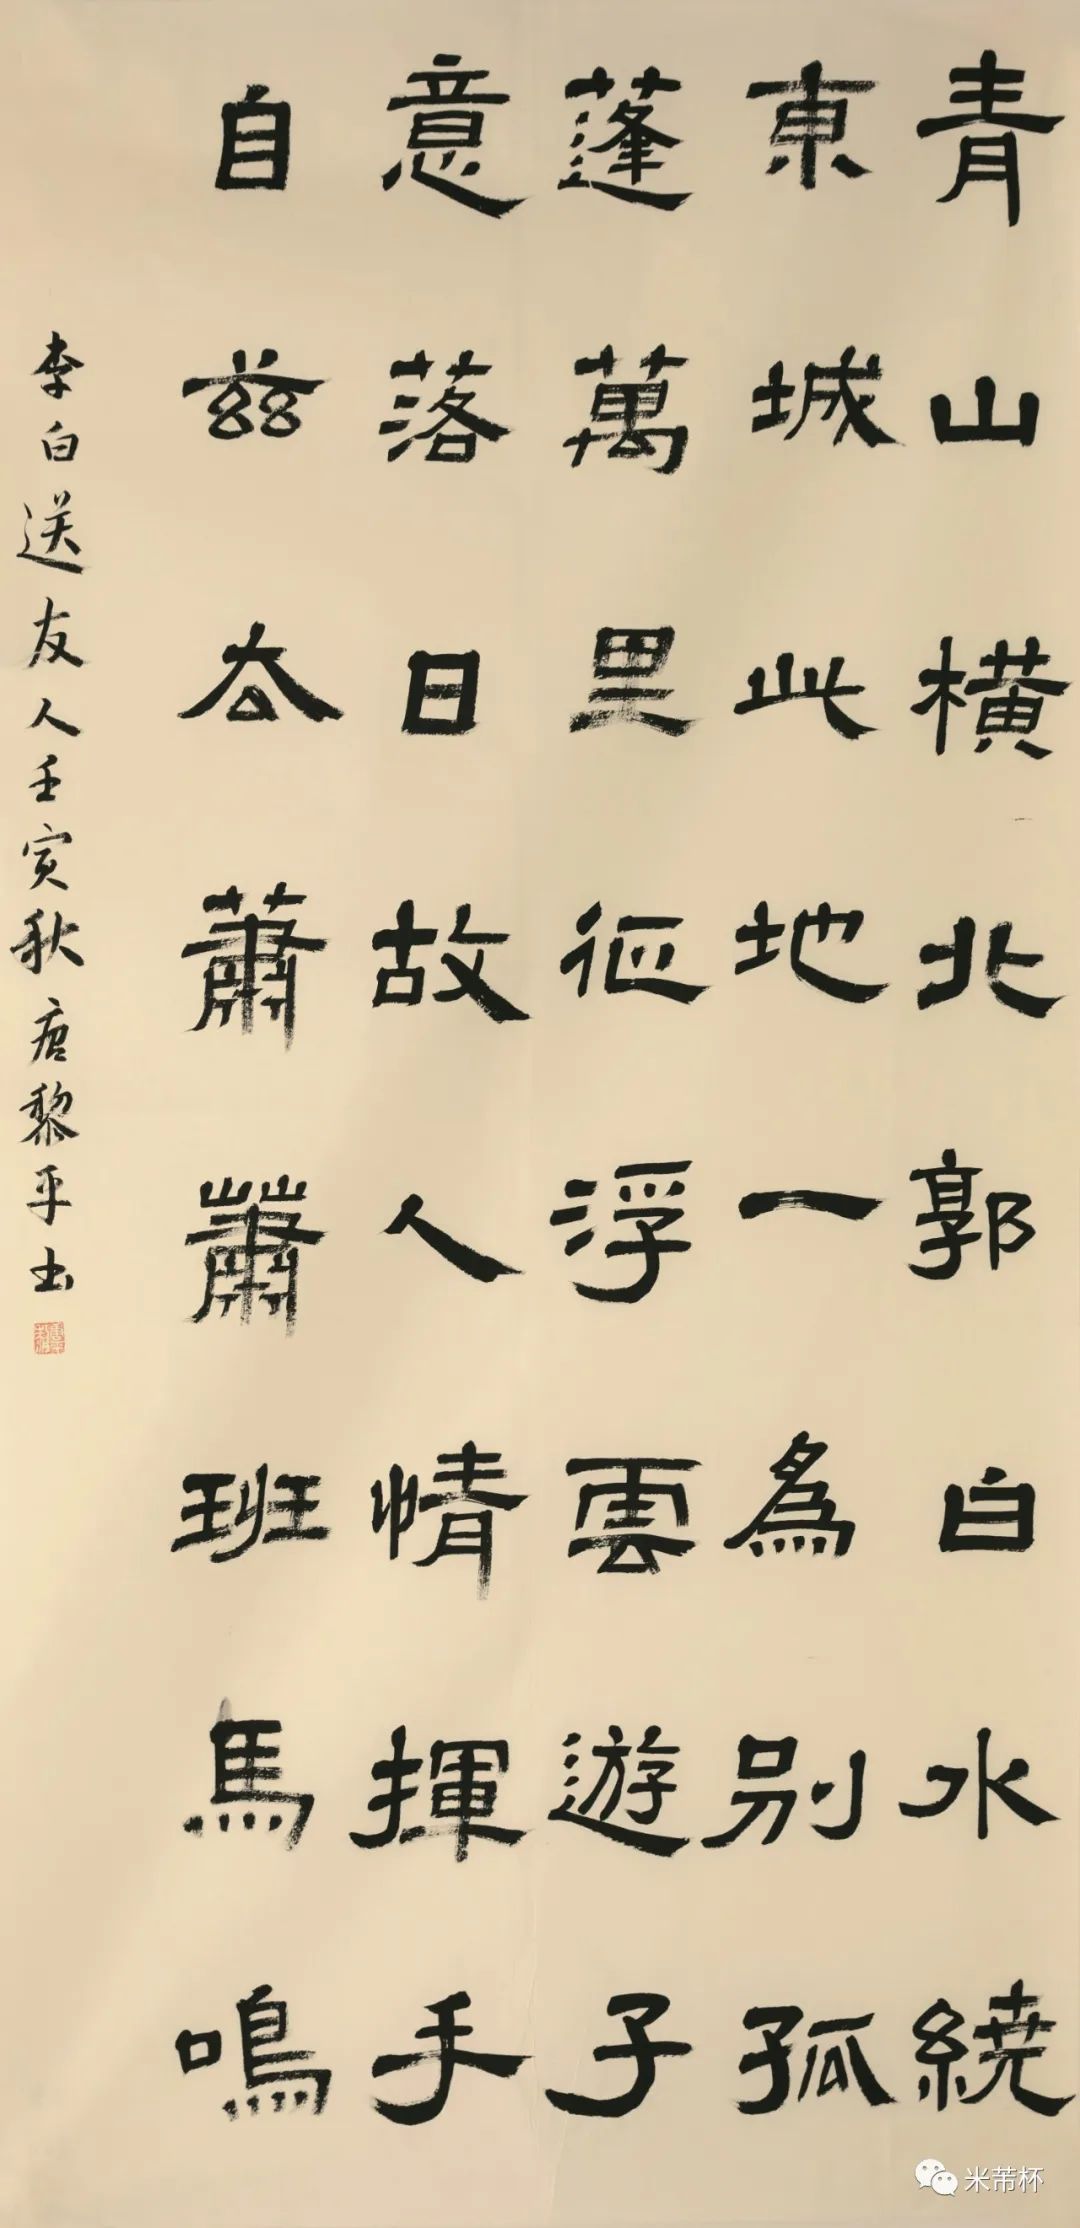 青山橫北郭白水繞
東城此地一為別孤
蓬萬里征浮雲遊子
意落日故人情揮手
自茲去蕭蕭班馬鳴
李白送友人壬寅秋唐黎平书
米芾杯